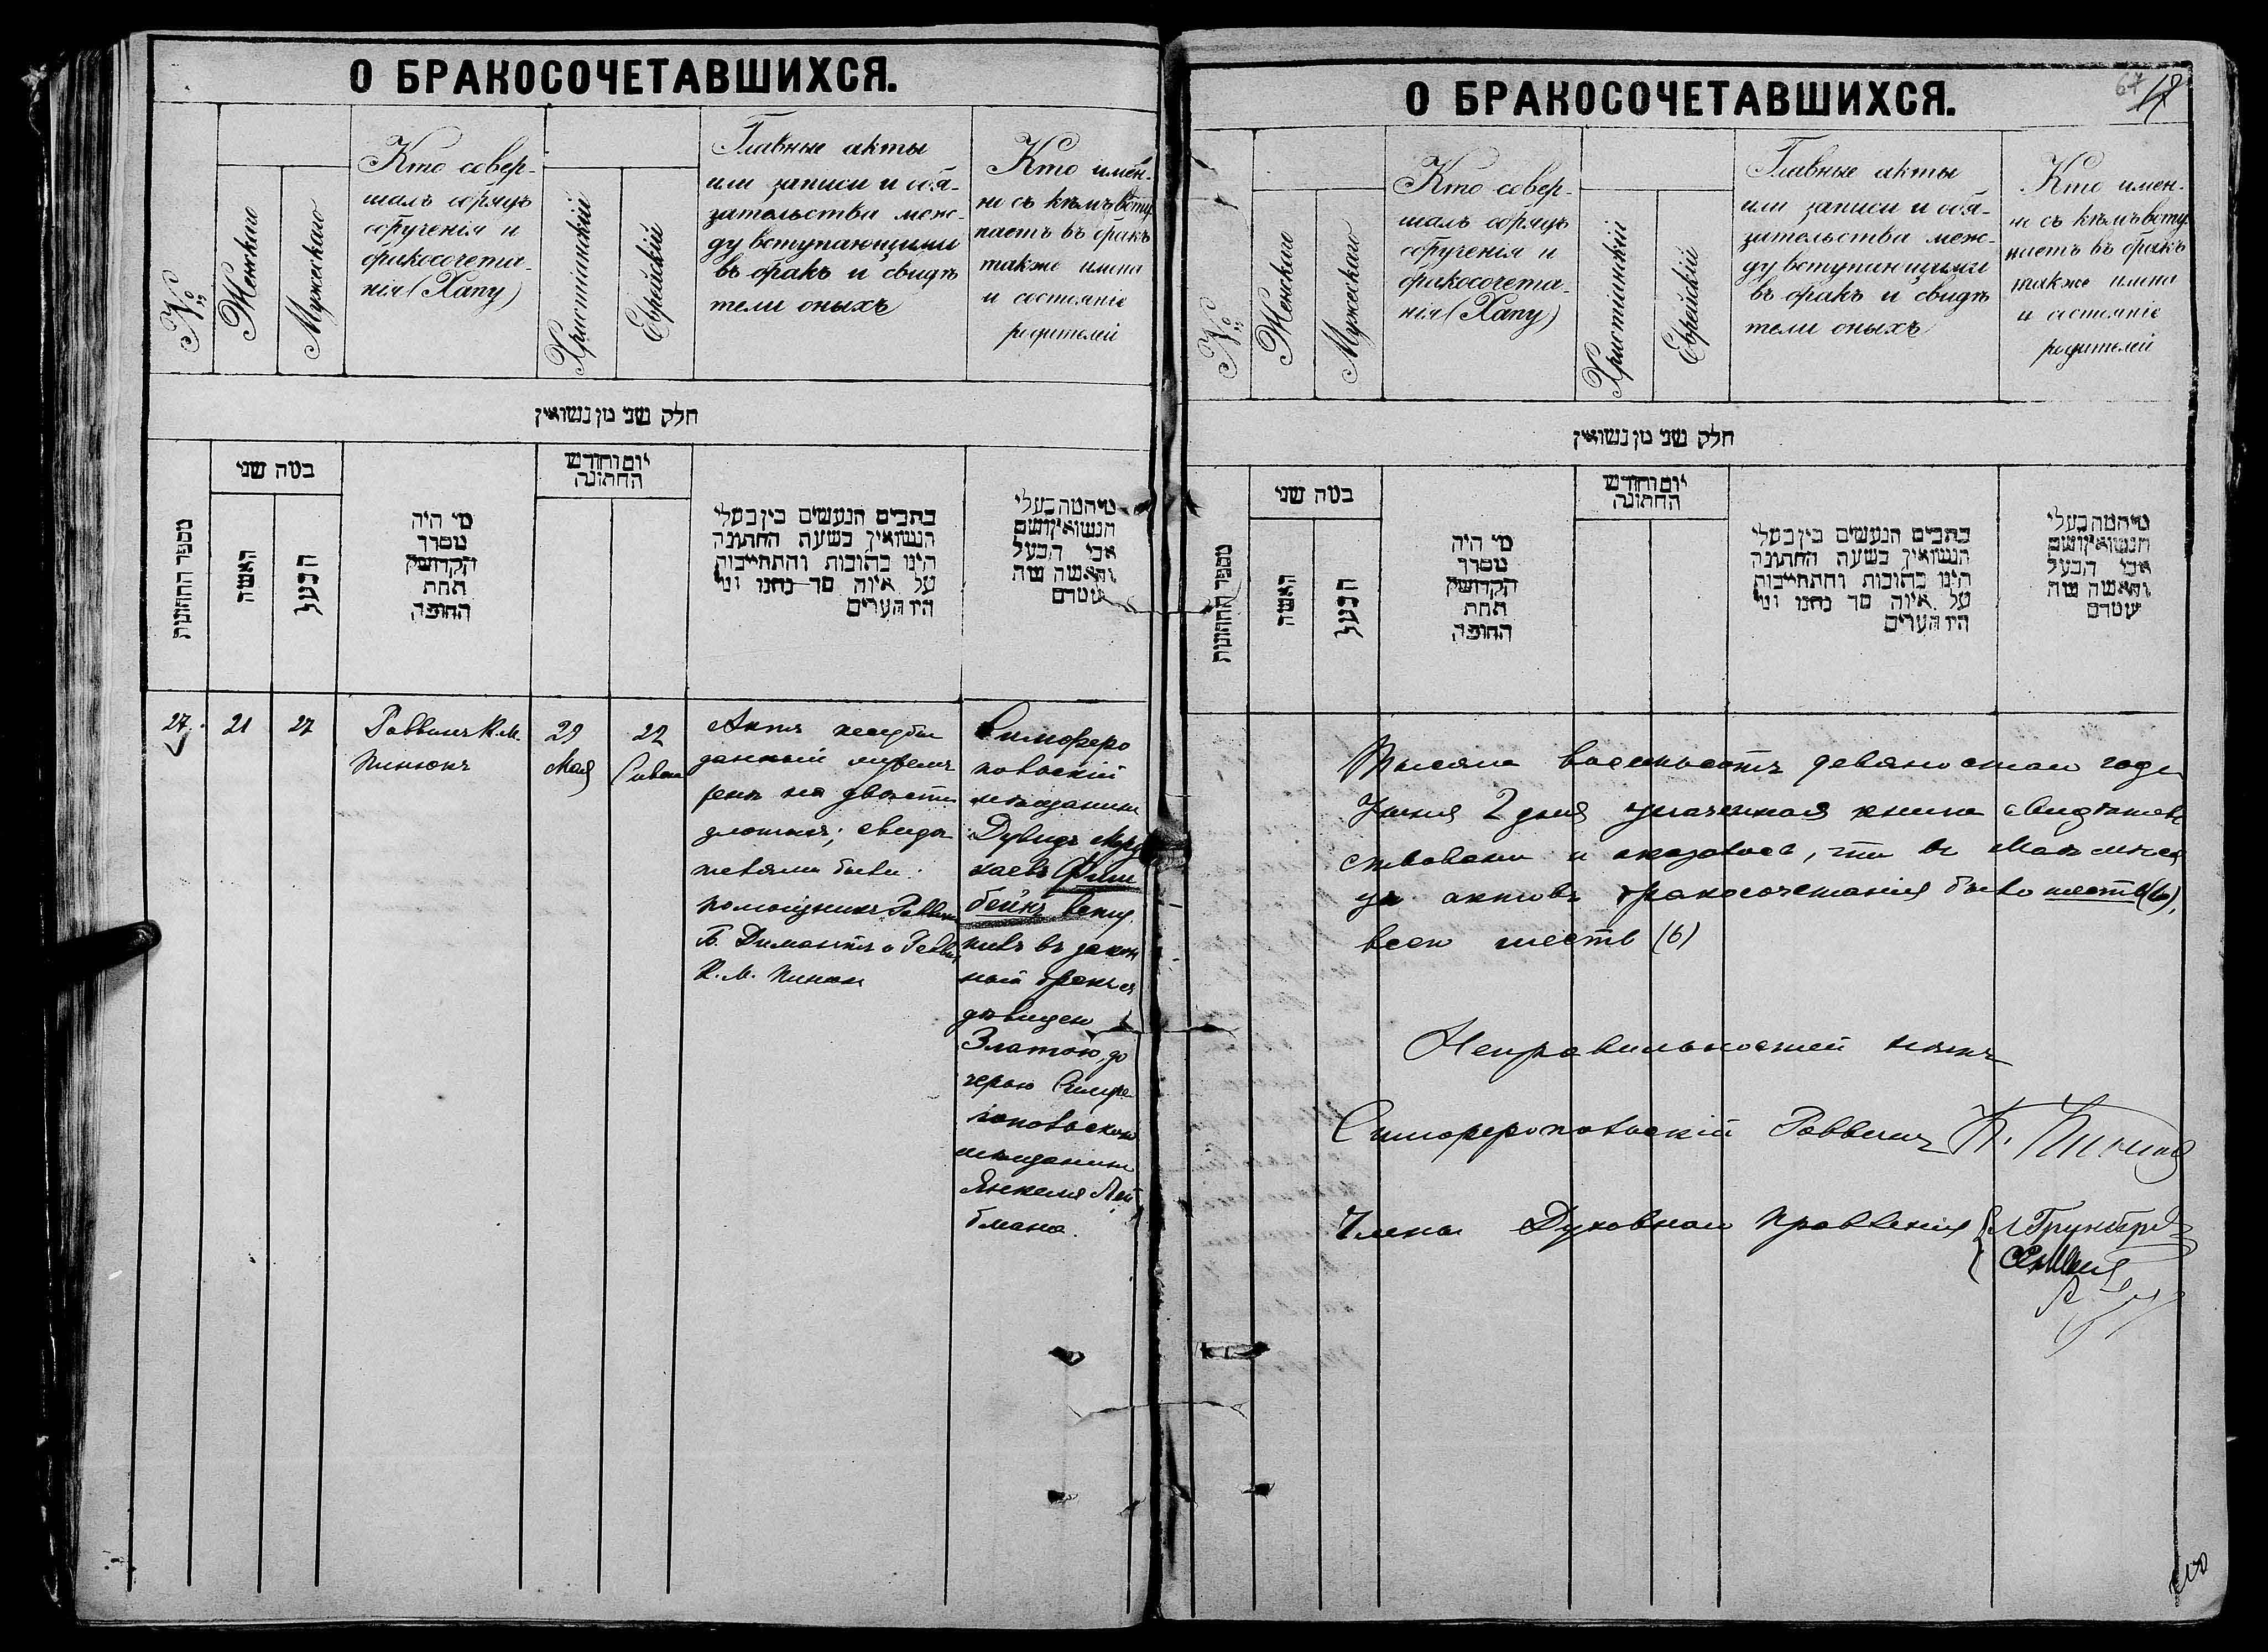 О БРАКОСОЧЕТАВШИХСЯ.
№
Женскаго
Мужескаго
Кто совер-
шалъ обрядъ
обрученія и
бракосочета-
нія (Хапу)
Христіанскій
Еврейскій
Главные акты
или записи и обя-
зательства меж-
ду вступающими
въ бракъ и свидѣ
тели оныхъ
Кто имен-
но съ кѣмъ всту
паетъ въ бракъ
также имена
и состояніе
родителей
חלק שני מן נשואין
מספר החתונות
כמה שני
האשה
הבעל
מי היה
מסדר
הקדושין
תחת
החופה
יום וחודש
החתונה
כתבים הנעשים בין בעלי
הנשואין בשעת החתונה
הינו כתובות והתחייבות
על איזה סך נתנו ומי
היו העדים
מי המה בעלי
הנשואין ושם
אבי הבעל
והאשה ומה
מעמדם
27.
21
27
Раввинъ К. М.
Пинюкъ
29
Мая
22
Сивана
Актъ кетубы
данный
на двѣсти
злотыхъ; свидѣ
телями были:
помощникъ Раввина
Б. Димантъ и Раввинъ
К. М. Пинюкъ
Симферо
польскій
мѣщанинъ
Дувидъ Морд
хаевъ Фиш
бейнъ всту
пилъ въ закон
ный бракъ съ
дѣвицею
Златою, до
черью Симфе
ропольскаго
мѣщанина
Янкеля Лей
бмана.
О БРАКОСОЧЕТАВШИХСЯ.
67
№
Женскаго
Мужескаго
Кто совер-
шалъ обрядъ
обрученія и
бракосочета-
нія (Хапу)
Христіанскій
Еврейскій
Главные акты
или записи и обя-
зательства меж-
ду вступающими
въ бракъ и свидѣ
тели оныхъ
Кто имен-
но съ кѣмъ всту
паетъ въ бракъ
также имена
и состояніе
родителей
חלק שני מן נשואין
מספר החתונות
כמה שני
האשה
הבעל
מי היה
מסדר
הקדושין
תחת
החופה
יום וחודש
החתונה
כתבים הנעשים בין בעלי
הנשואין בשעת החתונה
הינו כתובות והתחייבות
על איזה סך נתנו ומי
היו העדים
מי המה בעלי
הנשואין ושם
אבי הבעל
והאשה ומה
מעמדם
Тысяча восемьсотъ девяностаго года
Іюня 2 дня книга свидѣтель
ствована и оказалось, что въ Маѣ мѣся
цѣ актовъ бракосочетанія было шесть (6),
всего шесть (6)
Неправильностей нѣтъ
Симферопольскій Раввинъ К. Пинюкъ
Члены Духовнаго Правленія { Л Грунберг